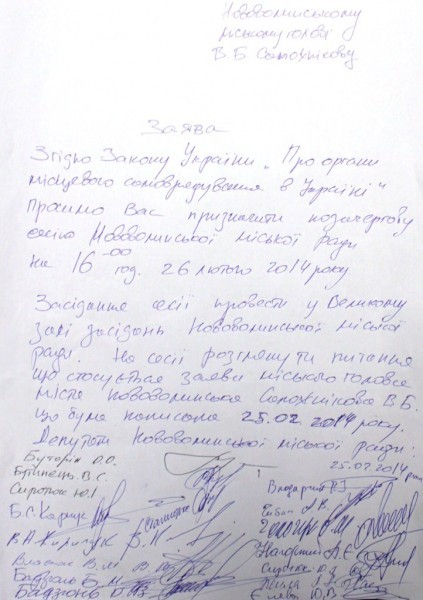 Нововолинському
міському голові
В.Б Сапожнікову
Заява
Згідно Закону України „Про органи
місцевого самоврядування в Україні"
просимо Вас призначити позачергову
сесію Нововолинської міської ради
на 16-00 год. 26 лютого 2014 року
Засідання сесії провести у Великому
залі засідань Нововолинської міської
ради. На сесії розглянути питання
що стосується заяви міського голови
міста Нововолинська Сапожнікова В.Б.
що була написана 25.02 2014 року.
Депутати Нововолинської міської ради:
25.02.2014 року
Буторін О.О.
Бринець В.С.
Сиротюк Ю.І
Б.С. Карпус
Бадзюнь